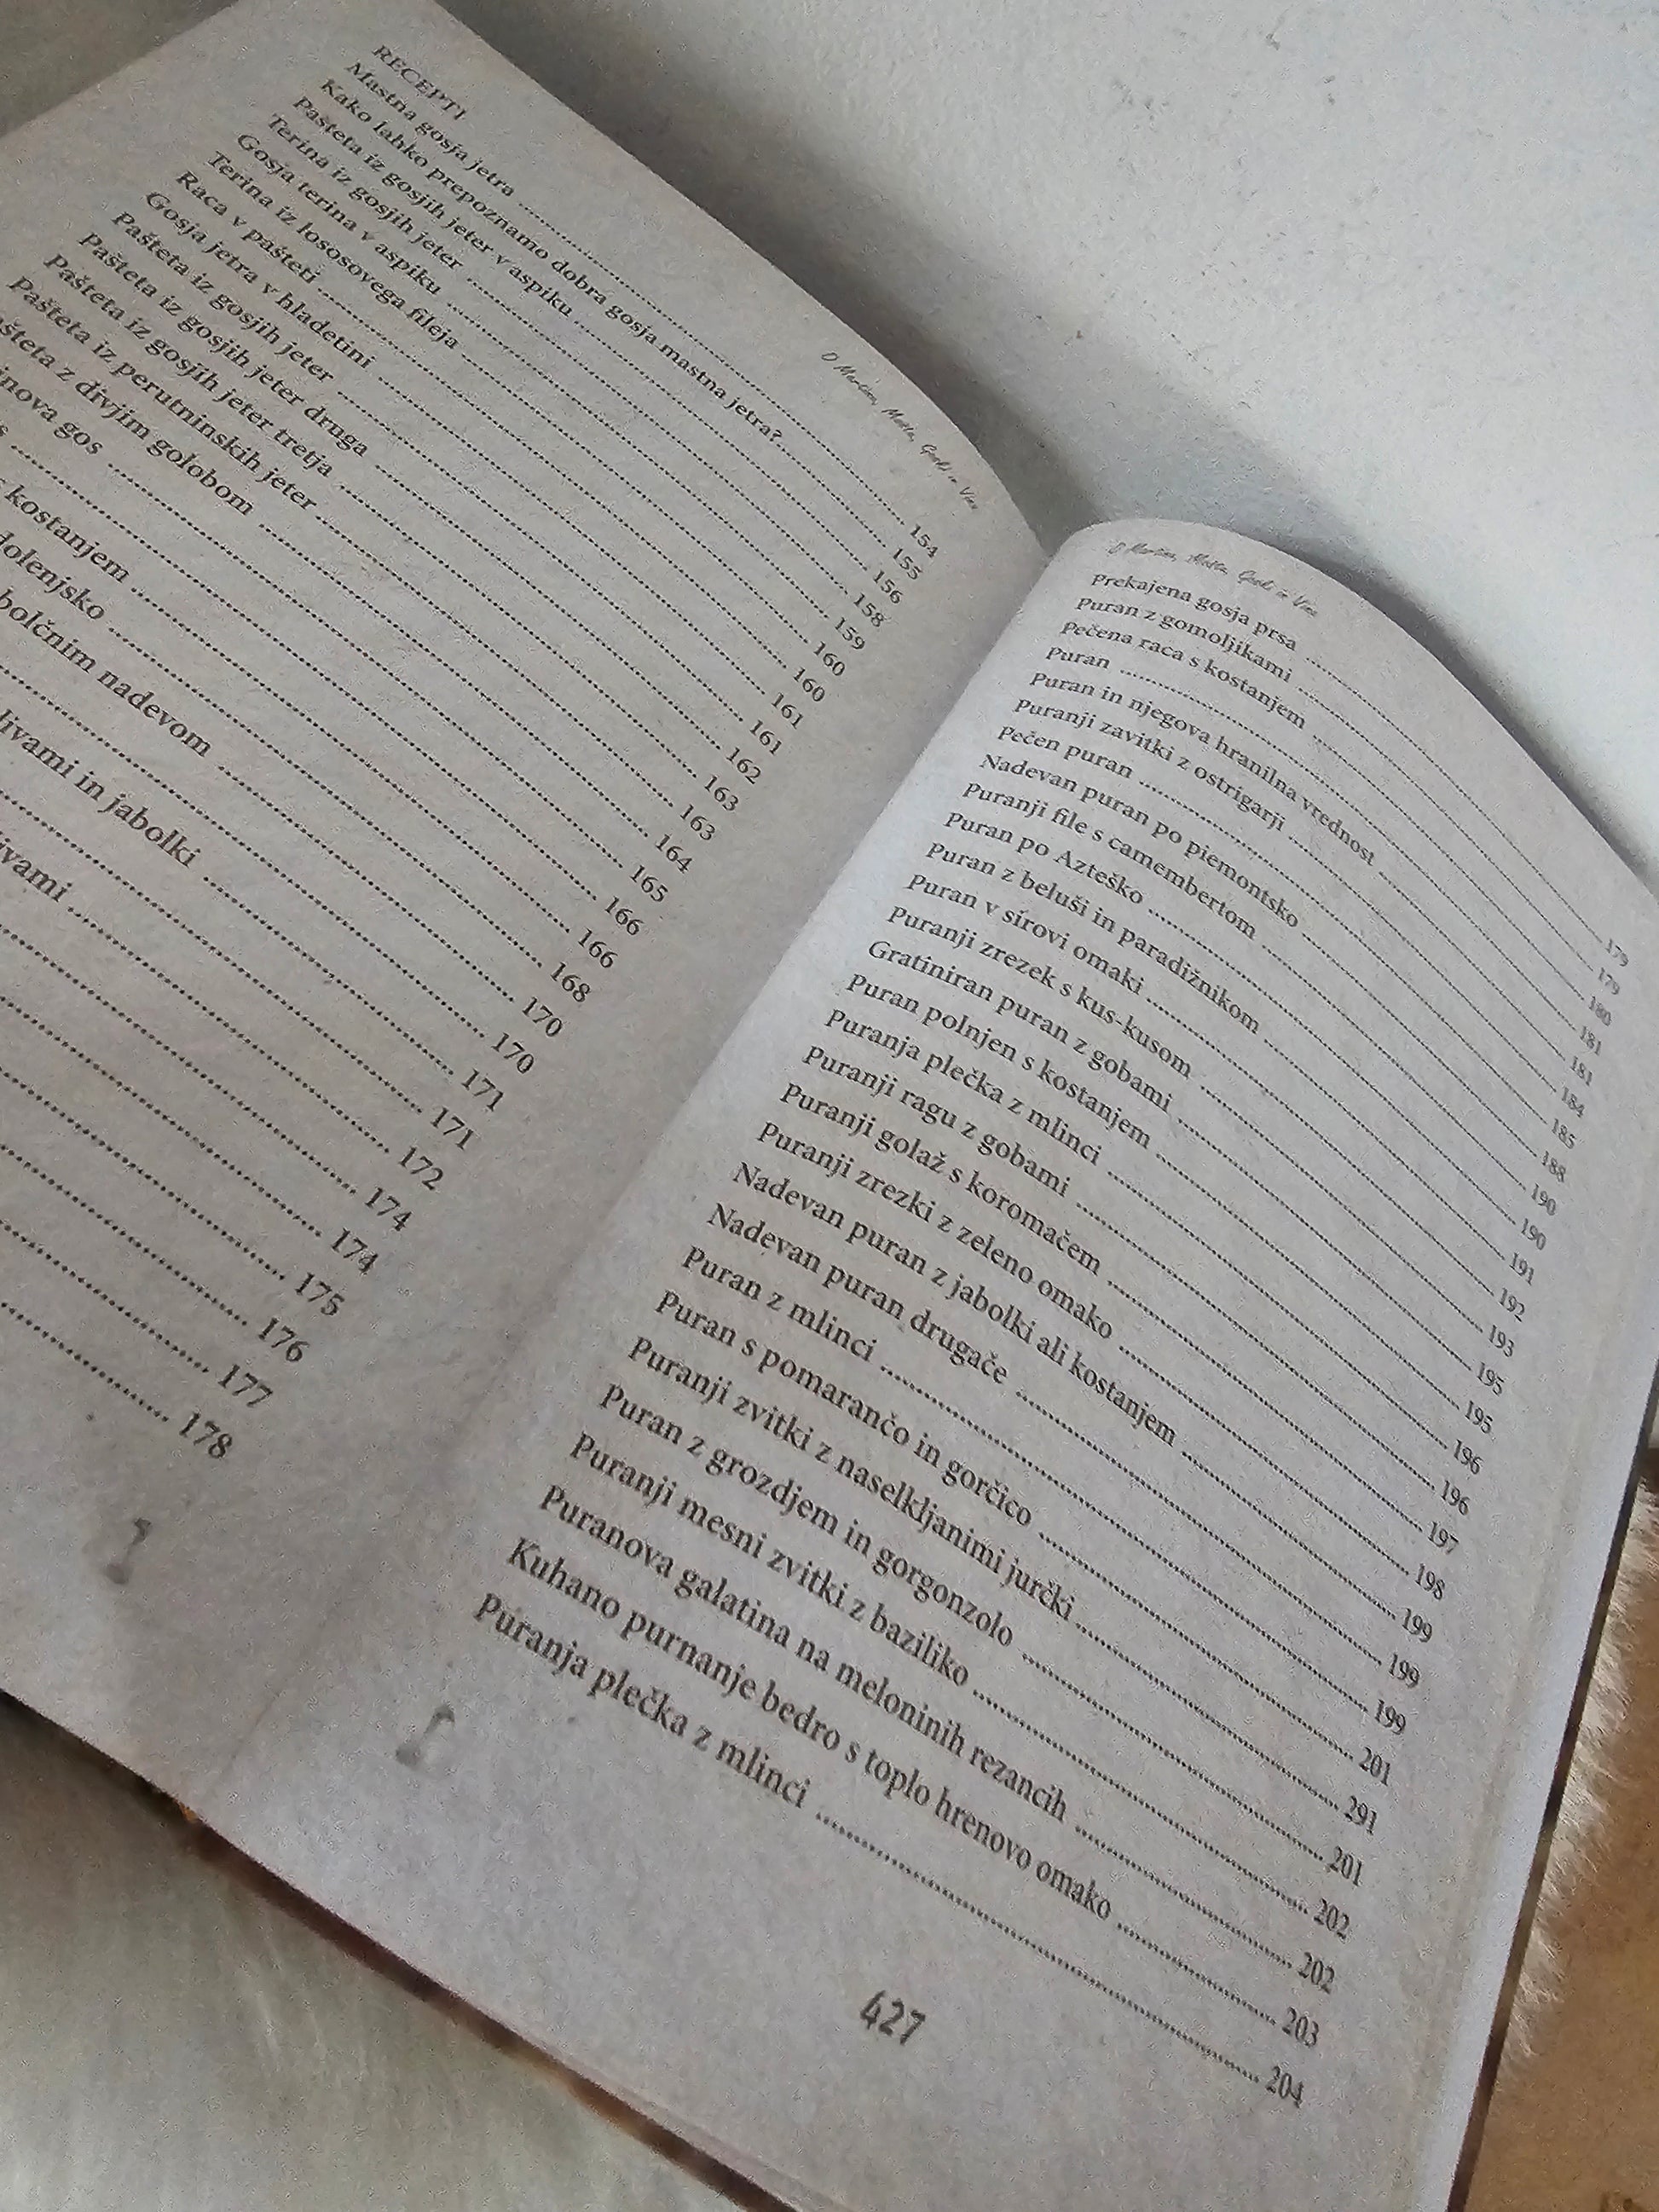 O Martinu, in Vinu
RECEPTI
Mastna gosja jetra ........ 154
Kako lahko prepoznamo dobra gosja mastna jetra? ........ 155
Pašteta iz gosjih jeter v aspiku ........ 156
Terina iz gosjih jeter ........ 158
Gosja terina v aspiku ........ 159
Terina iz lososovega fileja ........ 160
Raca v pašteti ........ 160
Gosja jetra v hladetini ........ 161
Pašteta iz gosjih jeter ........ 161
Pašteta iz gosjih jeter druga ........ 162
Pašteta iz gosjih jeter tretja ........ 163
Pašteta iz perutninskih jeter ........ 163
šteta z divjim golobom ........ 164
inova gos ........ 165
s ........ 166
kostanjem ........ 166
dolenjsko ........ 168
bolčnim nadevom ........ 170
........ 170
livami in jabolki ........ 171
........ 171
ivami ........ 172
........ 174
........ 174
........ 175
........ 176
........ 177
........ 178
O Martinu, in Vinu
Prekajena gosja prsa ........ 179
Puran z gomoljikami ........ 179
Pečena raca s kostanjem ........ 180
Puran ........ 181
Puran in njegova hranilna vrednost ........ 181
Puranji zavitki z ostrigarji ........ 184
Pečen puran ........ 185
Nadevan puran po piemontsko ........ 188
Puranji file s camembertom ........ 190
Puran po Azteško ........ 190
Puran z beluši in paradižnikom ........ 191
Puran v sirovi omaki ........ 192
Puranji zrezek s kus-kusom ........ 193
Gratiniran puran z gobami ........ 195
Puran polnjen s kostanjem ........ 195
Puranja plečka z mlinci ........ 196
Puranji ragu z gobami ........ 196
Puranji golaž s koromačem ........ 197
Puranji zrezki z zeleno omako ........ 198
Nadevan puran z jabolki ali kostanjem ........ 199
Nadevan puran drugače ........ 199
Puran z mlinci ........ 199
Puran s pomarančo in gorčico ........ 201
Puranji zvitki z naselkljanimi jurčki ........ 291
Puran z grozdjem in gorgonzolo ........ 201
Puranji mesni zvitki z baziliko ........ 202
Puranova galatina na meloninih rezancih ........ 202
Kuhano purnanje bedro s toplo hrenovo omako ........ 203
Puranja plečka z mlinci ........ 204
427